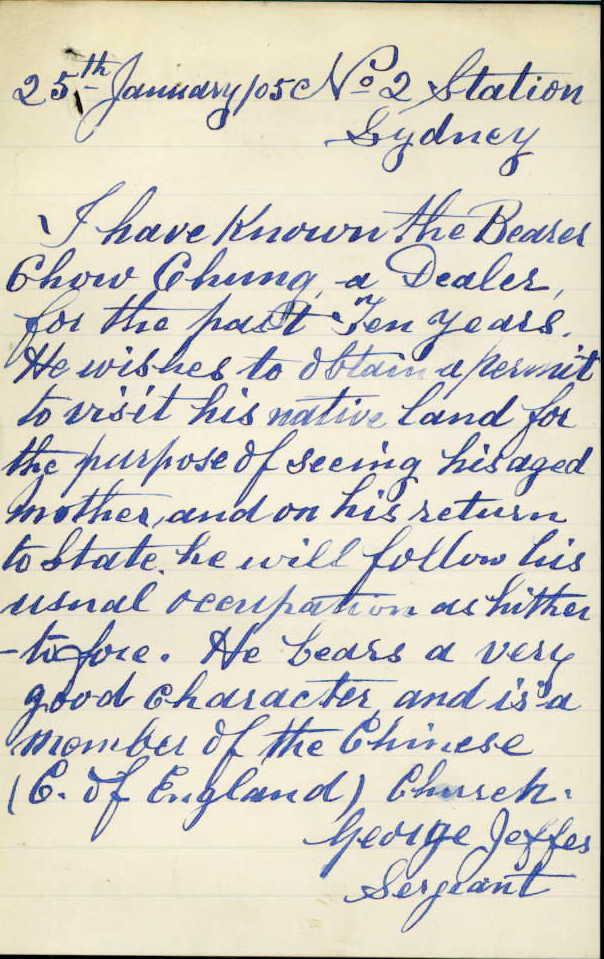 25th January/05 No 2 Station
Sydney
I have Known the Bearer
Chow Chung, a Dealer,
for the past Ten years.
He wishes to obtain a permit
to visit his native land for
the purpose of seeing his aged
mother, and on his return
to State he will follow his
usual occupation as hither
-tofore. He bears a very
good character, and is a
member of the Chinese
(C. of England) Church.
George Jeffes
Sergeant